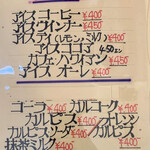 アイスコーヒー ¥400
アイスウインナー ¥450
アイスティ(レモン、ミルク) ¥400
アイスココア 450
カフェハワイアン ¥450
アイスオーレ ¥400
コーラ ¥400 カルコーク ¥400
カルピス ¥400 オレンジ
カルピスソーダ ¥400 カルピス ¥400
抹茶ミルク ¥400